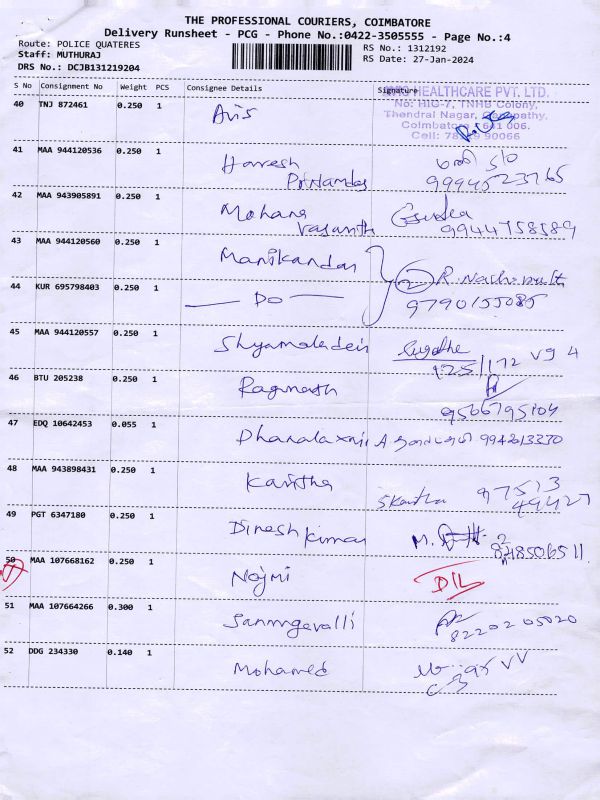 THE PROFESSIONAL COURIERS, COIMBATORE
Delivery Runsheet - PCG - Phone No.:0422-3505555 - Page No.:4
Route: POLICE QUATERES
RS No.: 1312192
Staff: MUTHURAJ
RS Date: 27-Jan-2024
DRS No.: DCJB131219204
S No Consignment No Weight PCS Consignee Details Signature
HEALTHCARE PVT. LTD.
40 TNJ 872461 0.250 1 Avis
No: HIG-7, TNHB Colony,
Thendral Nagar,
Coimbatore 641 006.
Cell:
41 MAA 944120536 0.250 1 Haresh
42 MAA 943905891 0.250 1 Mohana
Vasanth 9944758589
43 MAA 944120560 0.250 1 Manikandan
44 KUR 695798403 0.250 1 Do 2 R.
9790155085
45 MAA 944120557 0.250 1 Shyamaladevi
46 BTU 205238 0.250 1 Ragunath
9566795104
47 EDQ 10642453 0.055 1 Dhanalaxmi 9942613330
48 MAA 943898431 0.250 1 Kavitha
S Kavitha 97513
49427
49 PGT 6347180 0.250 1 Dinesh Kumar M.
50 MAA 107668162 0.250 1 Najmi D/L
51 MAA 107664266 0.300 1 Sanmugavalli
82202 05020
52 DDG 234330 0.140 1 Mohamed